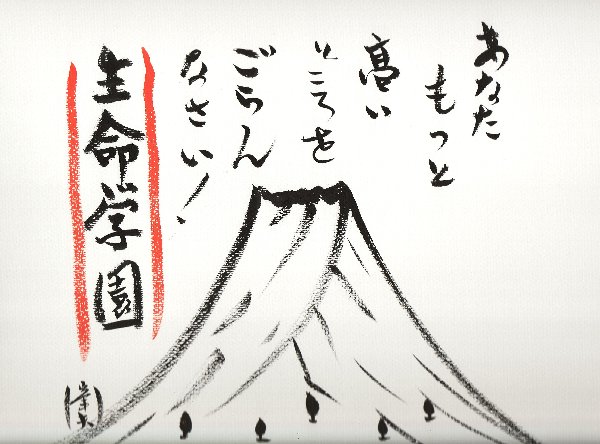 あなた
もっと
高い
ところを
ごらん
なさい!
生命学園